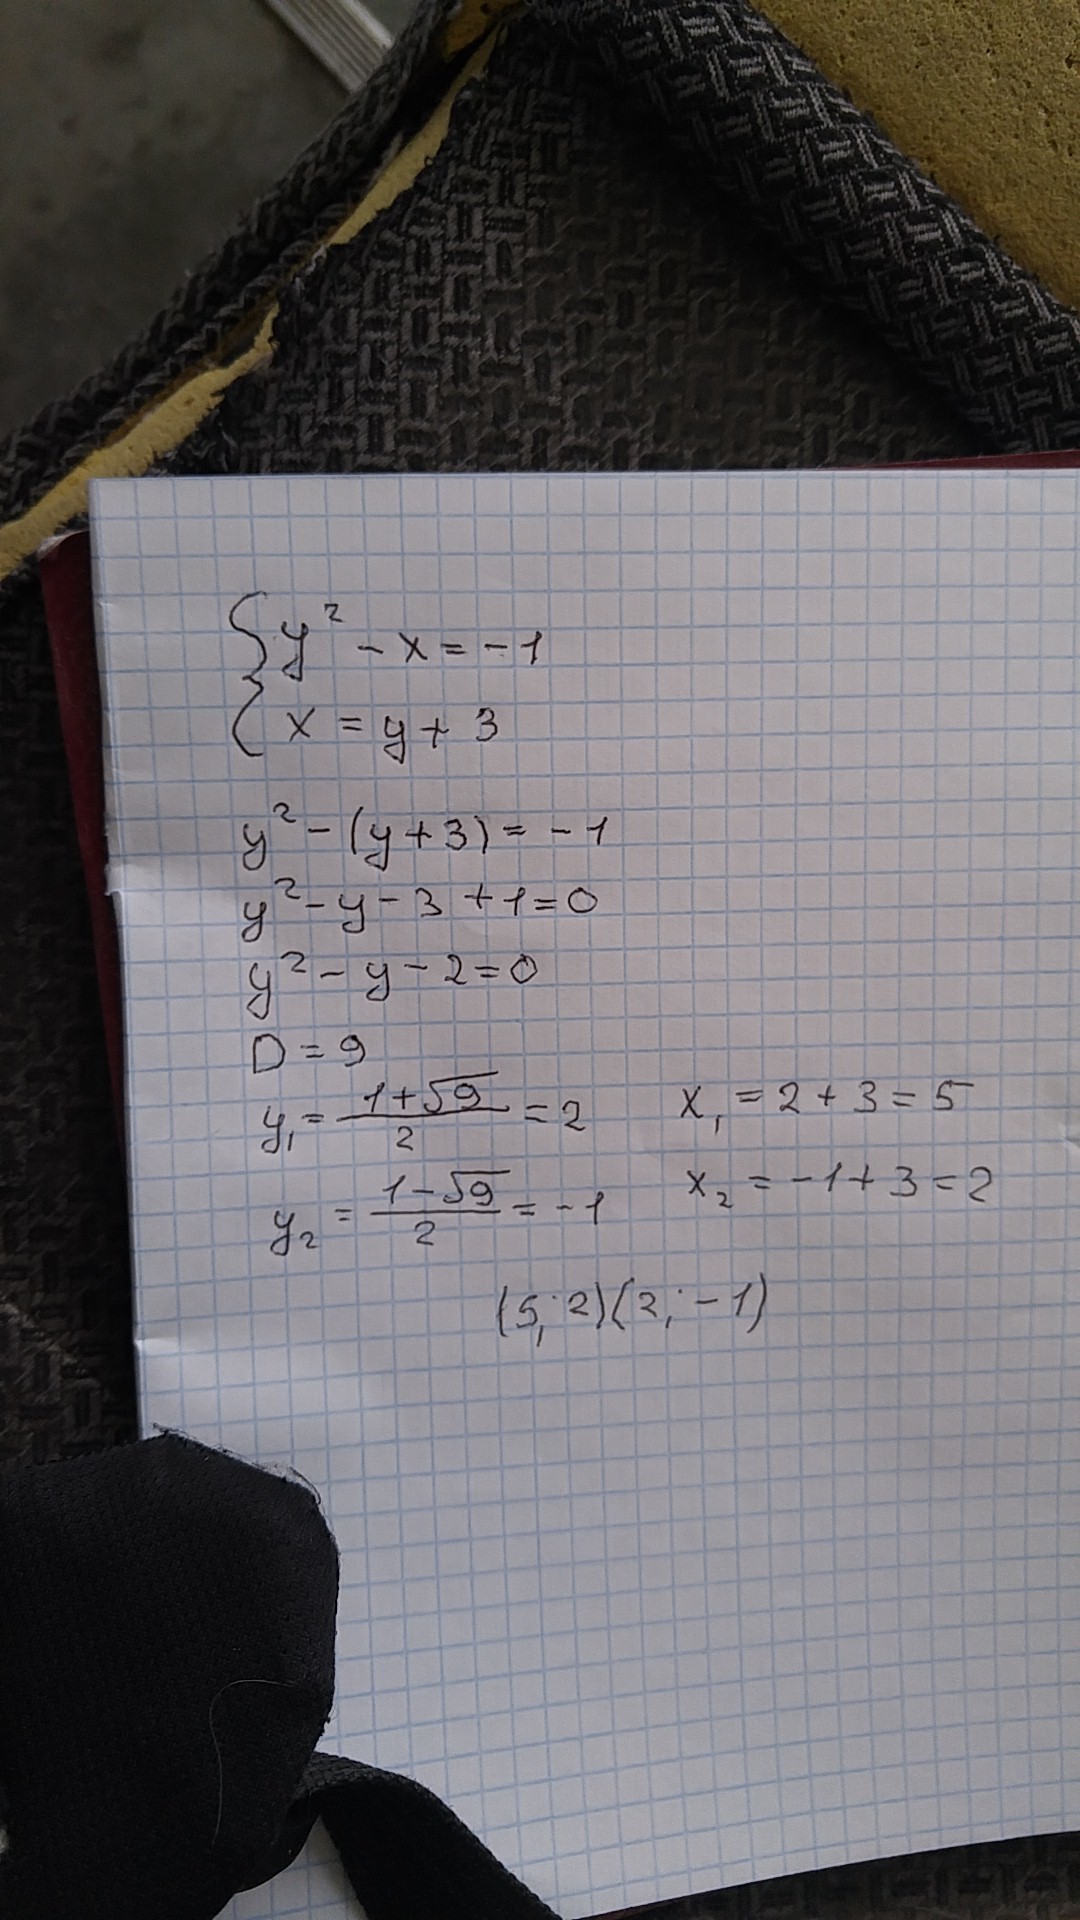 { y² - x = -1
{ x = y + 3
y² - (y + 3) = -1
y² - y - 3 + 1 = 0
y² - y - 2 = 0
D = 9
y₁ = (1 + √9)/2 = 2    x₁ = 2 + 3 = 5
y₂ = (1 - √9)/2 = -1    x₂ = -1 + 3 = 2
(5; 2)(2; -1)